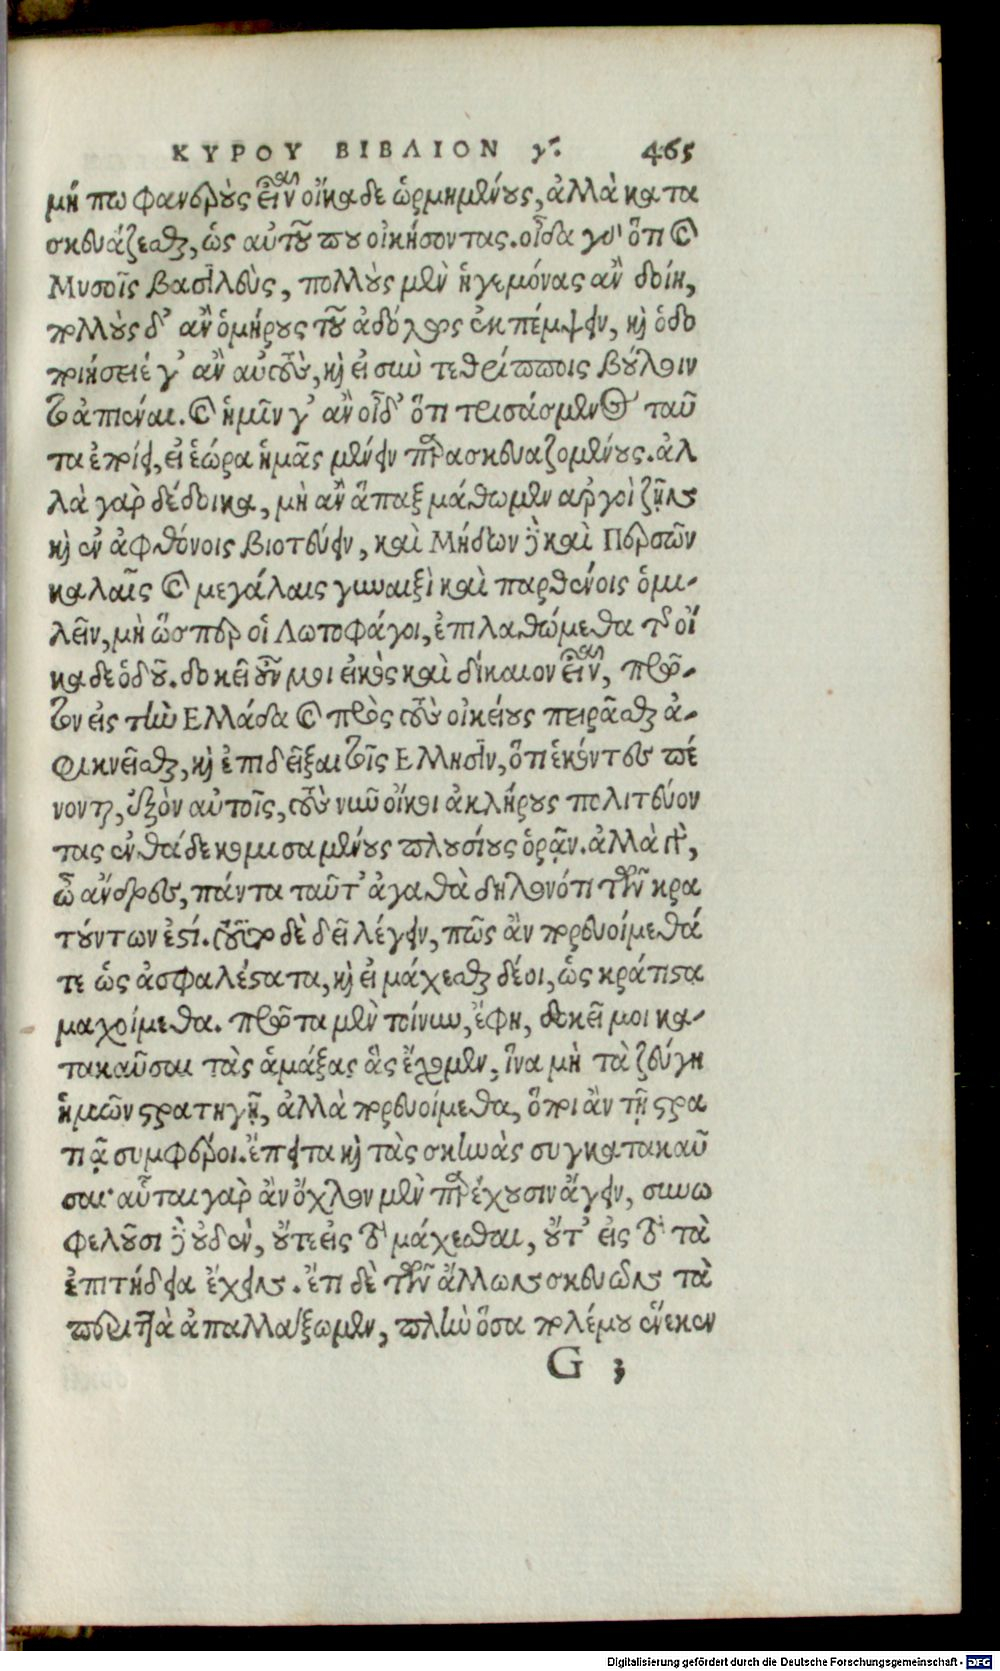 ΚΥΡΟΥ ΒΙΒΛΙΟΝ γʹ. 465
μή πω φανερὺς εἶναι οἴκαδε ὡρμημένους, ἀλλὰ κατα
σκευάζεσθαι, ὡς αὐτοῦ που οἰκήσοντας. οἶδα γὰρ ὅτι καὶ
Μυσοῖς βασιλεὺς, πολλοὺς μὲν ἡγεμόνας ἂν δοίη,
πολλοὺς δ' ἂν ὁμήρους τοῦ ἀδόλως ἐκπέμψειν, καὶ ὁδο
ποιήσειέ γ' ἂν αὐτοὺς, καὶ εἰ σὺν τεθρίπποις βούλοιν
το ἀπιέναι. καὶ ἡμῖν γ' ἂν οἶδ' ὅτι τρισάσμενος ταῦ
τα ἐποίει, εἰ ἑώρα ἡμᾶς μένειν παρασκευαζομένους. ἀλ
λὰ γὰρ δέδοικα, μὴ ἂν ἅπαξ μάθωμεν ἀργοὶ ζῆν
καὶ ἐν ἀφθόνοις βιοτεύειν, καὶ Μήδων δὲ καὶ Περσῶν
καλαῖς καὶ μεγάλαις γυναιξὶ καὶ παρθένοις ὁμι-
λεῖν, μὴ ὥσπερ οἱ Λωτοφάγοι, ἐπιλαθώμεθα τῆς οἴ
καδε ὁδοῦ. δοκεῖ οὖν μοι εἰκὸς καὶ δίκαιον εἶναι, πρῶ-
τον εἰς τὴν Ελλάδα καὶ πρὸς τοὺς οἰκείους πειρᾶσθαι ἀ-
φικνεῖσθαι, καὶ ἐπιδεῖξαι τοῖς Ελλησιν, ὅτι ἑκόντες πέ
νονται, ἐξὸν αὐτοῖς, τοὺς νῦν οἴκοι ἀκλήρους πολιτεύον
τας ἐνθάδε κομισαμένους πλουσίους ὁρᾷν. ἀλλὰ γὰρ,
ὦ ἄνδρες, πάντα ταῦτ' ἀγαθὰ δηλονότι τῶν κρα
τούντων ἐστί. τοῦτο δὲ δεῖ λέγειν, πῶς ἂν πορευοίμεθά
τε ὡς ἀσφαλέστατα, καὶ εἰ μάχεσθαι δέοι, ὡς κράτιστα
μαχοίμεθα. πρῶτα μὲν τοίνυν, ἔφη, δοκεῖ μοι κα-
τακαῦσαι τὰς ἁμάξας ἃς ἔχομεν, ἵνα μὴ τὰ ζεύγη
ἡμῶν στρατηγῇ, ἀλλὰ πορευοίμεθα, ὅποι ἂν τῇ στρα
τιᾷ συμφέροι. ἔπειτα καὶ τὰς σκηνὰς συγκατακαῦ
σαι· αὗται γὰρ ἂν ὄχλον μὲν παρέχουσιν ἄγειν, συνω
φελοῦσι δὲ οὐδὲν, οὔτε εἰς τὸ μάχεσθαι, οὔτ' εἰς τὸ τὰ
ἐπιτήδεια ἔχειν. ἔτι δὲ τῶν ἄλλων σκευῶν τὰ
περιττὰ ἀπαλλάξωμεν, πλὴν ὅσα πολέμου ἕνεκεν
G 3
Digitalisierung gefördert durch die Deutsche Forschungsgemeinschaft - DFG